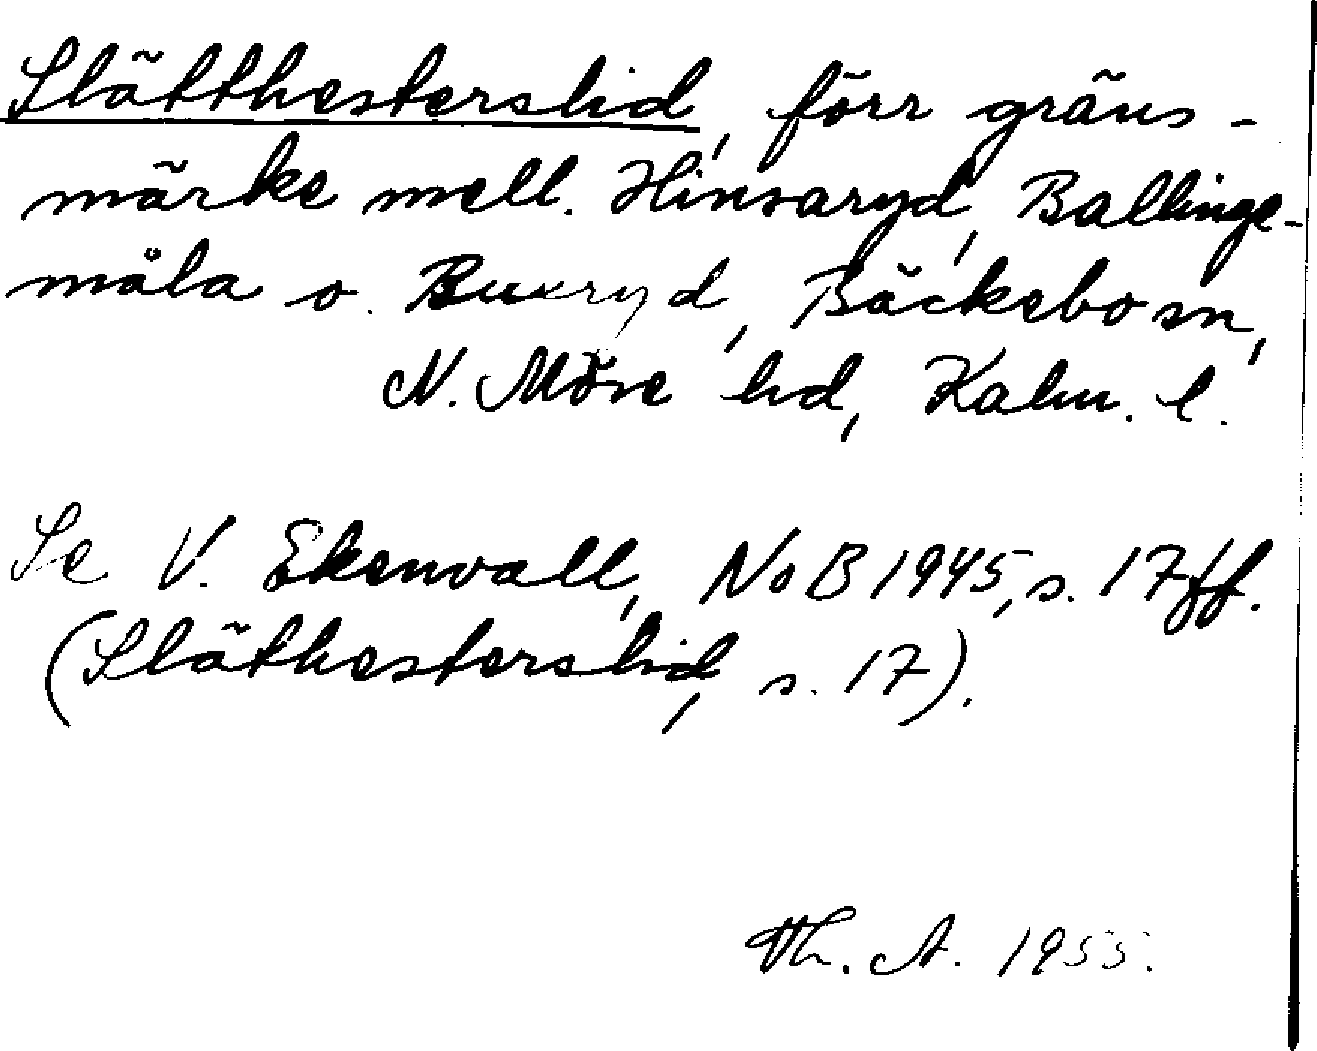 Slätthesterslid, förr gräns-
märke mell. Hinsaryd, Ballinge-
måla o. Buxryd, Bäckebo sn,
N. Möre hd, Kalm. l.
Se V. Ekenvall, NoB 1945, s. 17 ff.
(Släthesterslid, s. 17).
Th. A. 1955.